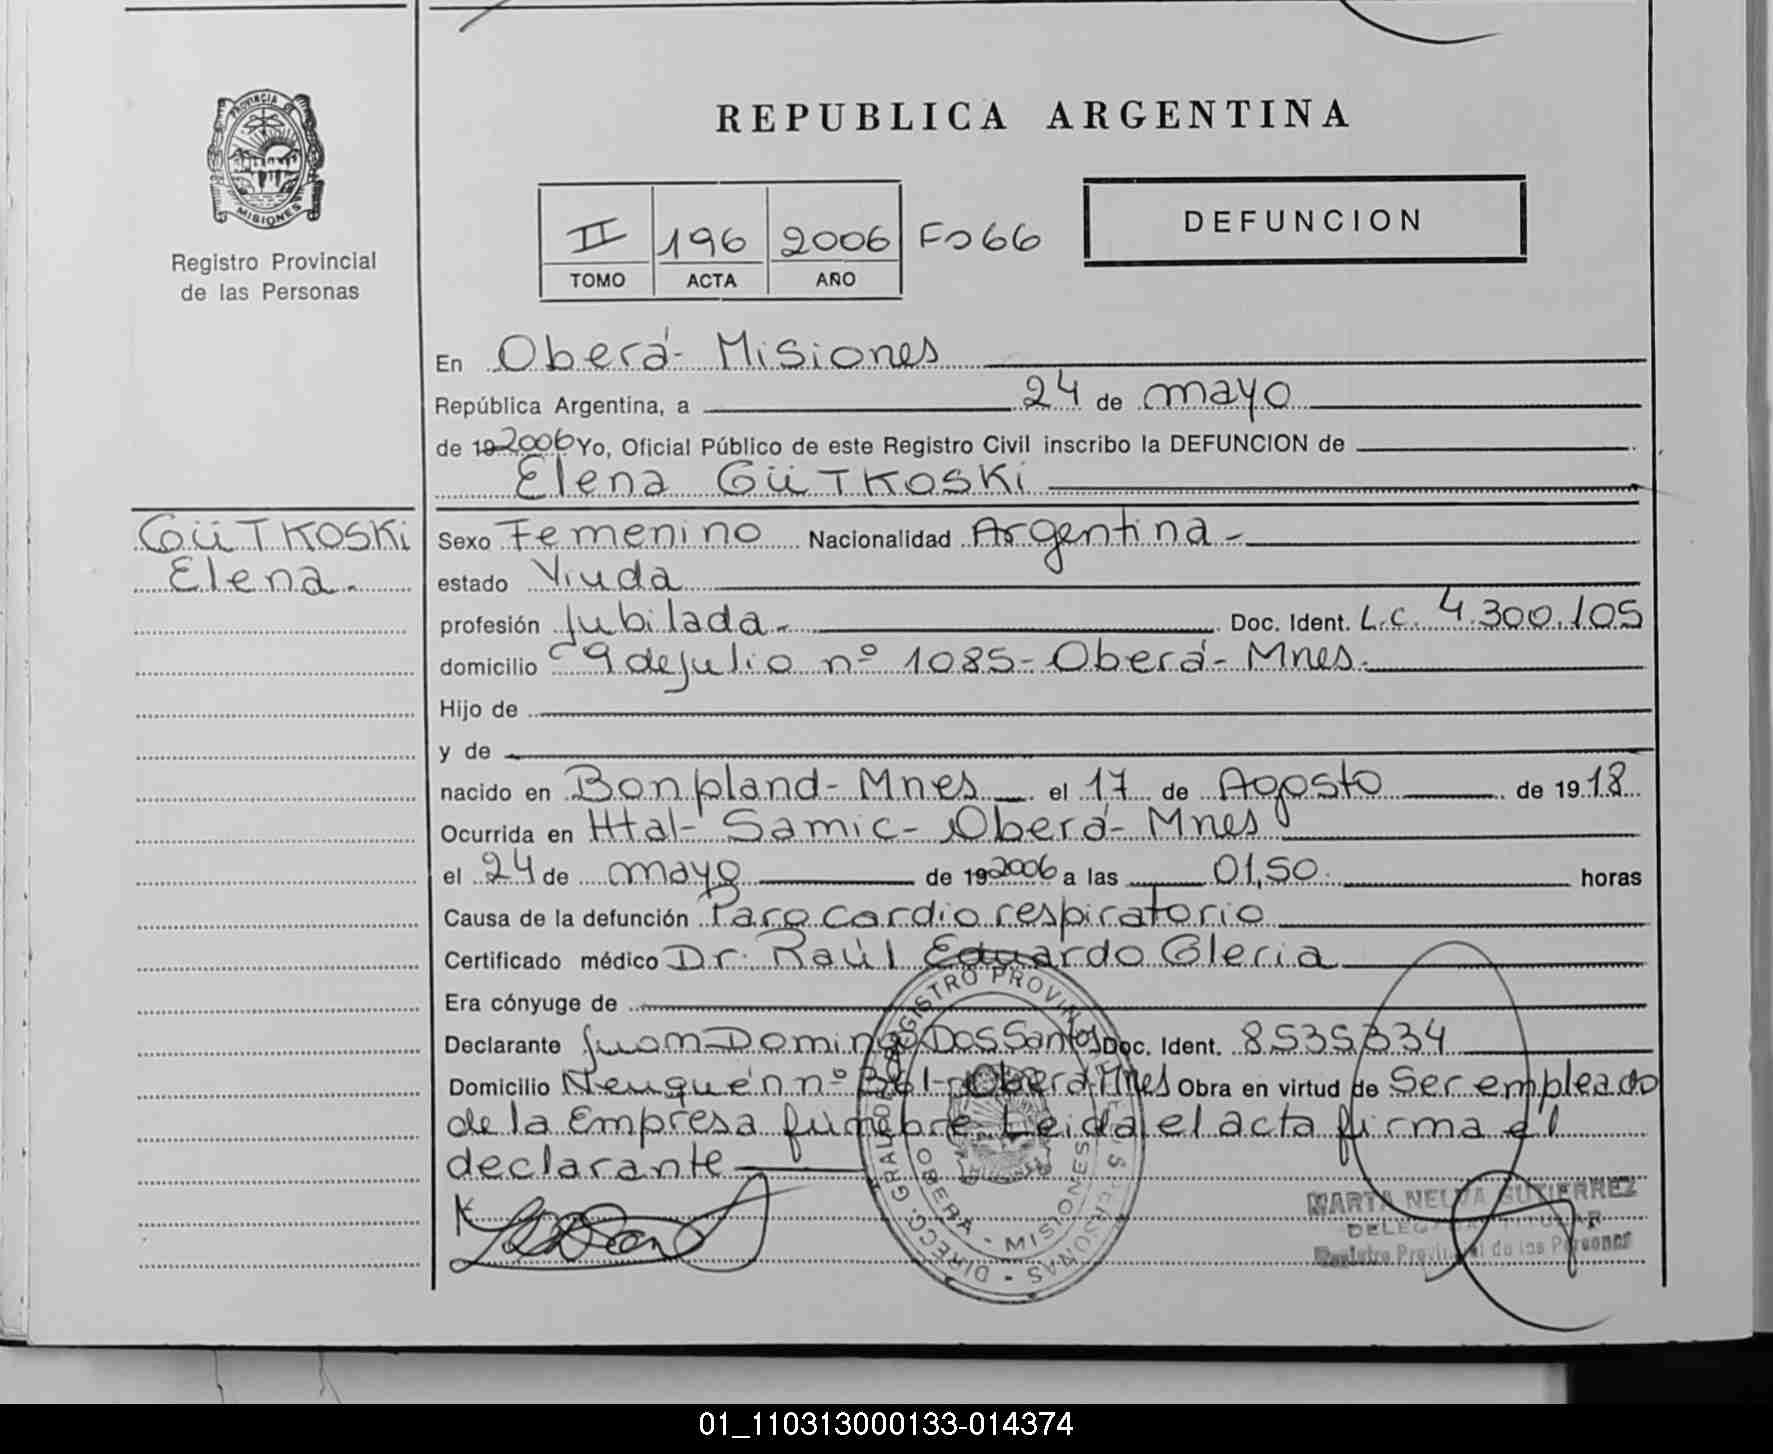 PROVINCIA
MISIONES
Registro Provincial
de las Personas
REPUBLICA ARGENTINA
II 196 2006 Fo 66
TOMO ACTA AÑO
DEFUNCION
En Oberá- Misiones
República Argentina, a 24 de mayo
de 19 2006 Yo, Oficial Público de este Registro Civil inscribo la DEFUNCION de
Elena GüTKOSKi
GüTKOSKi
Elena.
Sexo Femenino Nacionalidad Argentina-
estado Viuda
profesión Jubilada.- Doc. Ident. L.C. 4.300.105
domicilio 9 de julio nº 1085- Oberá- Mnes.
Hijo de
y de
nacido en Bonpland- Mnes el 17 de Agosto de 19 18
Ocurrida en Htal- Samic- Oberá- Mnes
el 24 de mayo de 19 2006 a las 01,50. horas
Causa de la defunción Paro cardio respiratorio
Certificado médico Dr. Raúl Eduardo Gleria
Era cónyuge de
Declarante Juan Domingo Dos Santos Doc. Ident. 8535334
Domicilio Neuquén nº 361- Oberá Mnes Obra en virtud de Ser empleado
de la Empresa fúnebre Leida el acta firma el
declarante
MARTA NELVA GUTIERREZ
DELEGADA TITULAR
Registro Provincial de las Personas
OBERA - MISIONES
01_110313000133-014374